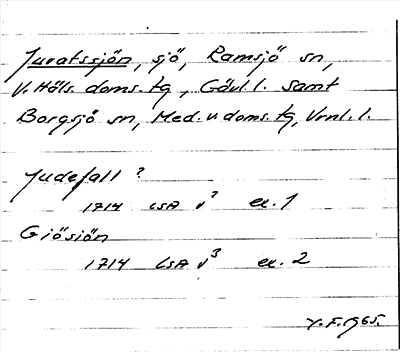 Juvatssjön, sjö, Ramsjö sn,
V. Häls. doms. tg, Gävl. l. samt
Borgsjö sn, Med. v doms. tg, Vrnl. l.
Judefall ?
1714 LSA v² ex. 1
Giösiön
1714 LSA v³ ex. 2
Y. F. 1965.